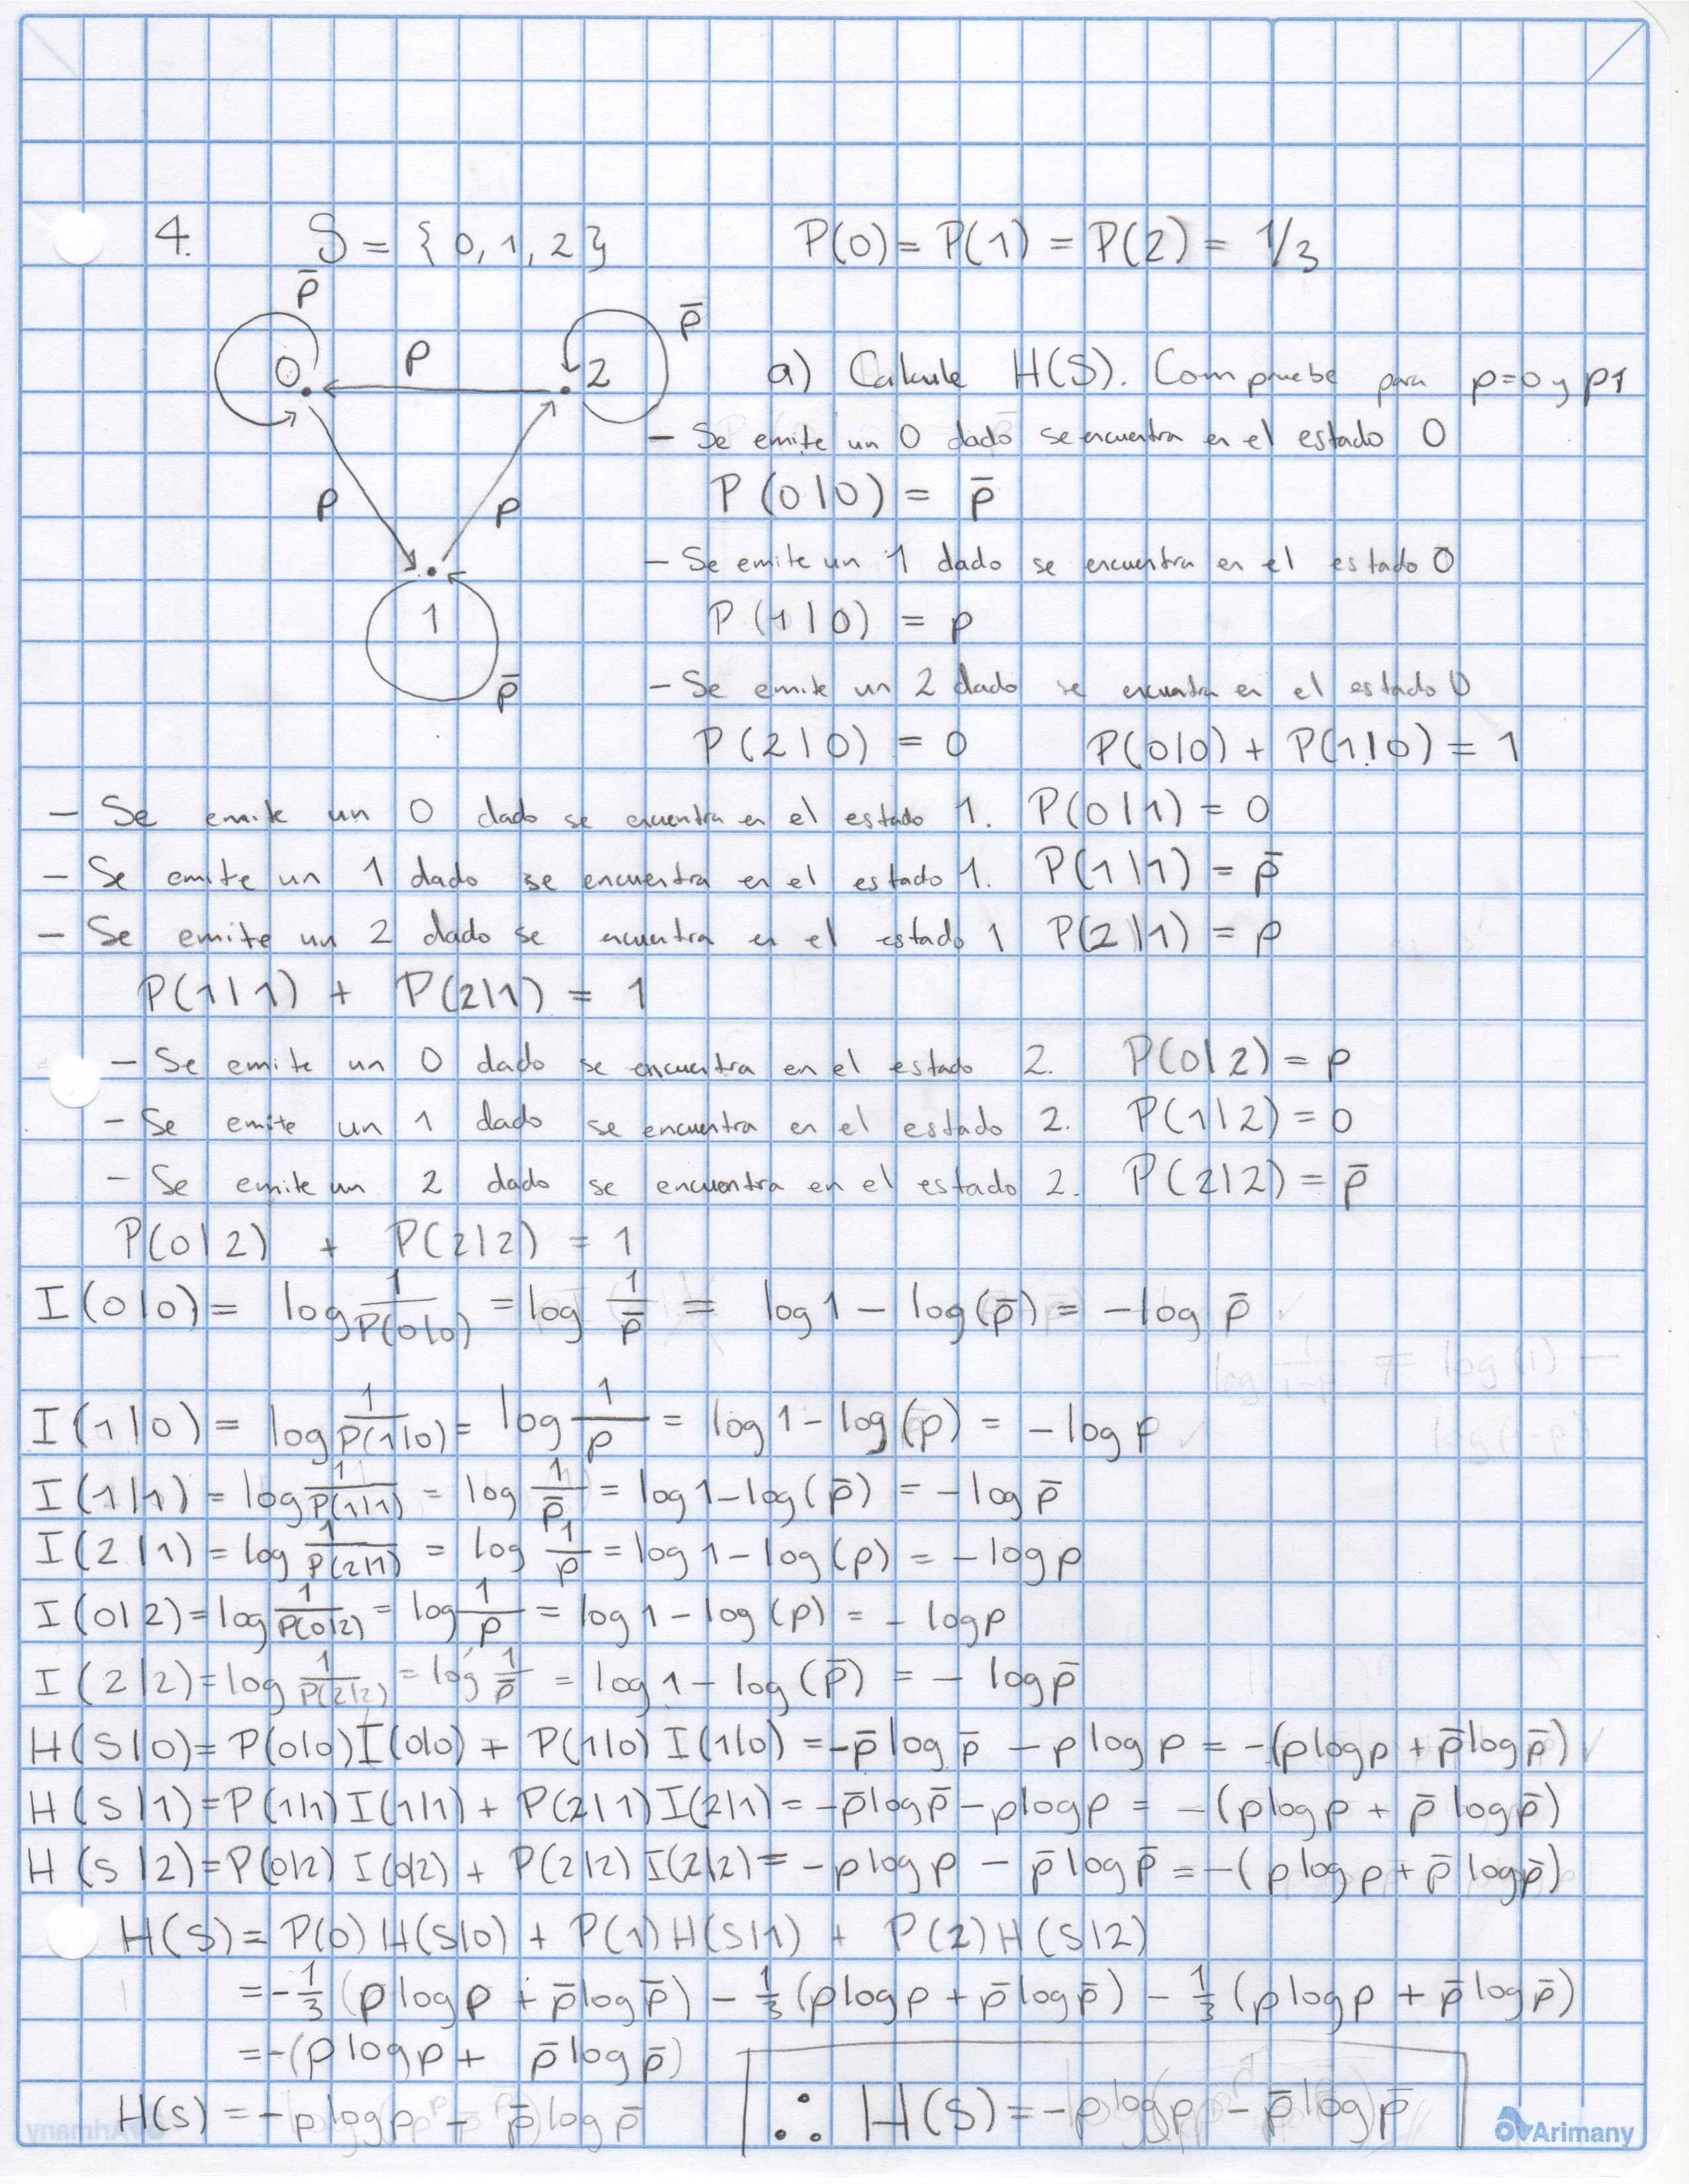 4. S = { 0, 1, 2 } P(0) = P(1) = P(2) = 1/3
p̄
p̄
p
0 2
a) Calcule H(S). Compruebe para p=0 y p1
- Se emite un 0 dado se encuentra en el estado 0
P(0|0) = p̄
p p
- Se emite un 1 dado se encuentra en el estado 0
1
P(1|0) = p
p̄
- Se emite un 2 dado se encuentra en el estado 0
P(2|0) = 0 P(0|0) + P(1|0) = 1
- Se emite un 0 dado se encuentra en el estado 1. P(0|1) = 0
- Se emite un 1 dado se encuentra en el estado 1. P(1|1) = p̄
- Se emite un 2 dado se encuentra en el estado 1 P(2|1) = p
P(1|1) + P(2|1) = 1
- Se emite un 0 dado se encuentra en el estado 2. P(0|2) = p
- Se emite un 1 dado se encuentra en el estado 2. P(1|2) = 0
- Se emite un 2 dado se encuentra en el estado 2. P(2|2) = p̄
P(0|2) + P(2|2) = 1
I(0|0) = log 1/P(0|0) = log 1/p̄ = log 1 - log(p̄) = -log p̄
I(1|0) = log 1/P(1|0) = log 1/p = log 1 - log(p) = -log p
I(1|1) = log 1/P(1|1) = log 1/p̄ = log 1 - log(p̄) = -log p̄
I(2|1) = log 1/P(2|1) = log 1/p = log 1 - log(p) = -log p
I(0|2) = log 1/P(0|2) = log 1/p = log 1 - log(p) = -log p
I(2|2) = log 1/P(2|2) = log 1/p̄ = log 1 - log(p̄) = -log p̄
H(S|0) = P(0|0) I(0|0) + P(1|0) I(1|0) = -p̄ log p̄ - p log p = -(p log p + p̄ log p̄)
H(S|1) = P(1|1) I(1|1) + P(2|1) I(2|1) = -p̄ log p̄ - p log p = -(p log p + p̄ log p̄)
H(S|2) = P(0|2) I(0|2) + P(2|2) I(2|2) = -p log p - p̄ log p̄ = -(p log p + p̄ log p̄)
H(S) = P(0) H(S|0) + P(1) H(S|1) + P(2) H(S|2)
= -1/3 (p log p + p̄ log p̄) - 1/3 (p log p + p̄ log p̄) - 1/3 (p log p + p̄ log p̄)
= -(p log p + p̄ log p̄)
H(S) = -p log p - p̄ log p̄ ∴ H(S) = -p log p - p̄ log p̄
Arimany